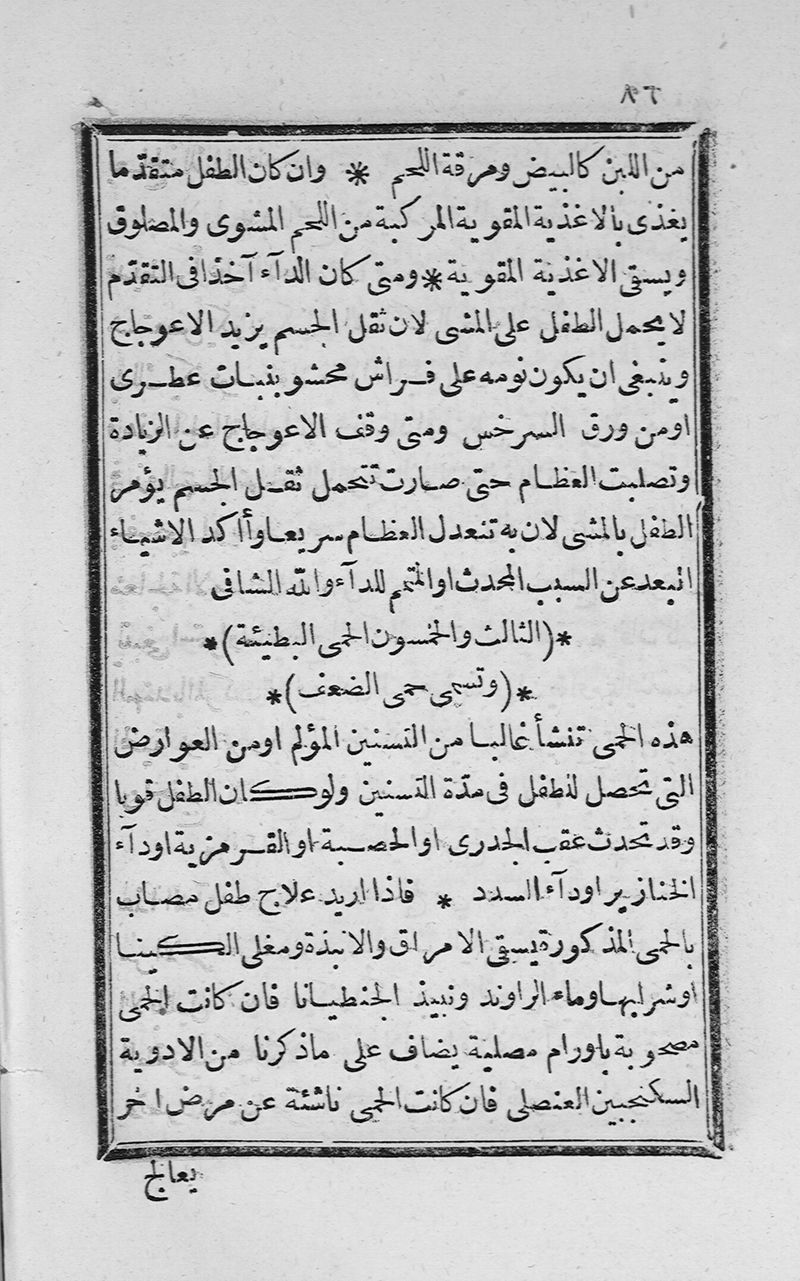 ٨٦
من اللبن كالبيض ومرقة اللحم * وان كان الطفل متقدّما
يغذى بالاغذية المقوية المركبة من اللحم المشوى والمصلوق
ويسقى الاغذية المقوية * ومتى كان الدآء آخذا فى التقدّم
لا يحمل الطفل على المشى لان ثقل الجسم يزيد الاعوجاج
وينبغى ان يكون نومه على فراش محشو بنبات عطرى
اومن ورق السرخس ومتى وقف الاعوجاج عن الزيادة
وتصلبت العظام حتى صارت تتحمل ثقل الجسم يؤمر
الطفل بالمشى لان به تنعدل العظام سريعا وأاكد الاشياء
البعد عن السبب المحدث او المتمم للدآء والله الشافى
*(الثالث والخمسون الحمى البطيئة)*
*(وتسمى حمى الضعف)*
هذه الحمى تنشأ غالبا من التسنين المؤلم اومن العوارض
التى تحصل للطفل فى مدّة التسنين ولو كان الطفل قويا
وقد تحدث عقب الجدرى او الحصبة او القرمزية او دآء
الخنازير او دآء السدد * فاذا اريد علاج طفل مصاب
بالحمى المذكورة يسقى الامراق والانبذة ومغلى الكينا
او شرابها وماء الراوند ونبيذ الجنطيانا فان كانت الحمى
مصحوبة باورام مصلية يضاف على ماذكرنا من الادوية
السكنجبين العنصلى فان كانت الحمى ناشئة عن مرض اخر
يعالج